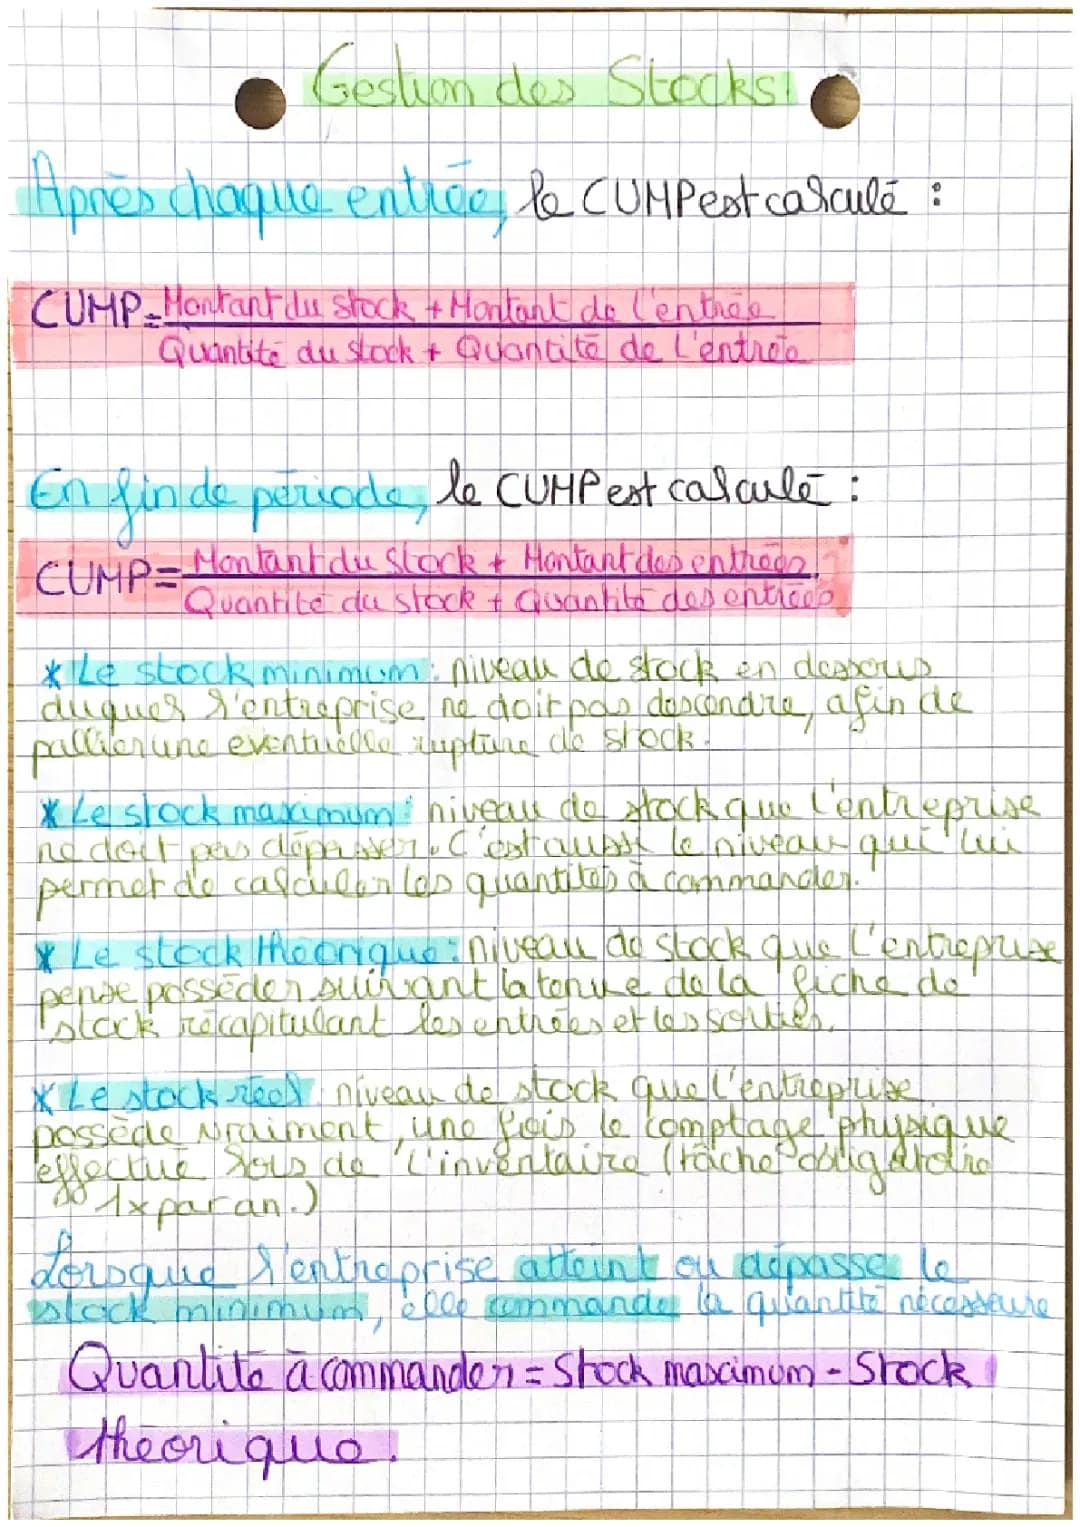 Gestion des Stocks
Après chaque entrée, le CUMP est calculé :
CUMP = Montant du stock + Montant de l'entrée
Quantité du stock + Quantité de l'entrée
En fin de période, le CUMP est calculé :
CUMP = Montant du Stock + Montant des entrées
Quantité du stock + Quantité des entrées
* Le stock minimum : niveau de stock en dessous
duquel l'entreprise ne doit pas descendre, afin de
pallier une eventuelle rupture de stock.
* Le stock maximum : niveau de stock que l'entreprise
ne doit pas dépasser. C'est aussi le niveau qui lui
permet de calculer les quantités à commander.
* Le stock théorique : niveau de stock que l'entreprise
pense posséder suivant la tenue de la fiche de
stock récapitulant les entrées et les sorties.
* Le stock réel : niveau de stock que l'entreprise
possède vraiment, une fois le comptage physique
effectué lors de l'inventaire (tâche obligatoire
1x par an.)
Lorsque l'entreprise atteint ou dépasse le
stock minimum, elle commande la quantité nécessaire
Quantité à commander = Stock maximum - Stock
théorique.